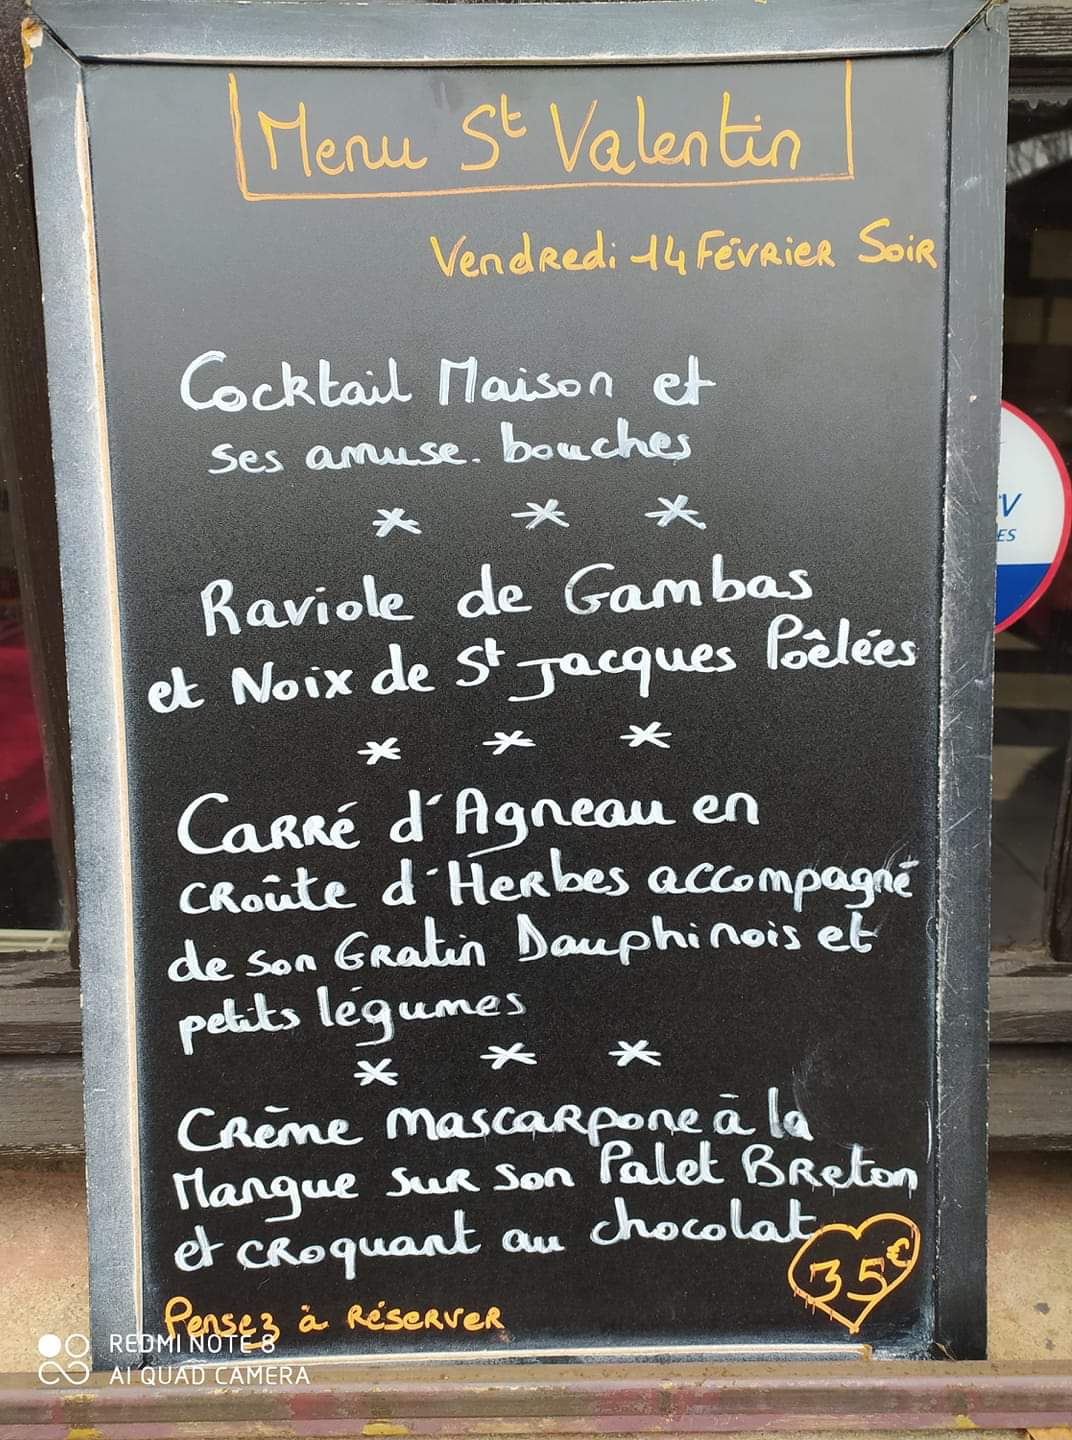 Menu St Valentin
Vendredi 14 Février Soir
Cocktail Maison et
ses amuse-bouches
* * *
Raviole de Gambas
et Noix de St Jacques Poêlées
* * *
Carré d'Agneau en
croûte d'Herbes accompagné
de son Gratin Dauphinois et
petits légumes
* * *
Crème mascarpone à la
Mangue sur son Palet Breton
et croquant au chocolat
35€
Pensez à réserver
REDMI NOTE 8
AI QUAD CAMERA